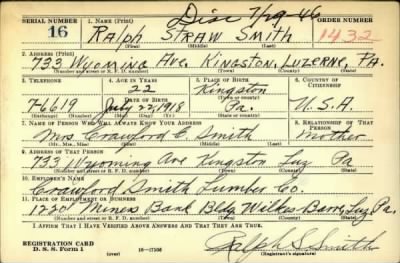 Disc 7/29-46
SERIAL NUMBER 1. NAME (Print) ORDER NUMBER
16 RALPH STRAW SMITH 1432
(First) (Middle) (Last)
2. ADDRESS (Print)
733 Wyoming Ave. Kingston, Luzerne, Pa.
(Number and street or R. F. D. number) (Town) (County) (State)
3. TELEPHONE 4. AGE IN YEARS 5. PLACE OF BIRTH 6. COUNTRY OF CITIZENSHIP
22 Kingston
DATE OF BIRTH (Town or county)
7-6619 July 1918 Pa. U.S.A.
(Exchange) (Number) (Mo.) (Day) (Yr.) (State or country)
7. NAME OF PERSON WHO WILL ALWAYS KNOW YOUR ADDRESS 8. RELATIONSHIP OF THAT PERSON
Mrs Crawford C. Smith Mother
(Mr., Mrs., Miss) (First) (Middle) (Last)
9. ADDRESS OF THAT PERSON
733 Wyoming Ave Kingston Luz Pa
(Number and street or R. F. D. number) (Town) (County) (State)
10. EMPLOYER'S NAME
Crawford Smith Lumber Co.
11. PLACE OF EMPLOYMENT OR BUSINESS
1220 Miners Bank Bldg Wilkes-Barre, Luz Pa.
(Number and street or R. F. D. number) (Town) (County) (State)
I AFFIRM THAT I HAVE VERIFIED ABOVE ANSWERS AND THAT THEY ARE TRUE.
REGISTRATION CARD Ralph S Smith
D. S. S. Form 1 (over) 16—17105 (Registrant's signature)